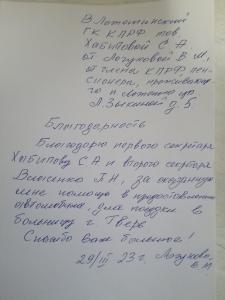 В Лотошинский
ГК КПРФ тов
Хабибовой С. А.
от Логуновой В. М,
от члена КПРФ пен-
сионера, проживающе-
го п Лотошино ул.
д. 5
Благодарность
Благодарю первого секретаря
С А и второго секретаря
Власенко П Н, за оказанную
мне помощь в предоставлении
автомобиля, для поездки в
больницу г Тверь
Спасибо Вам большое!
29/III 23 г. Логунова
В. М